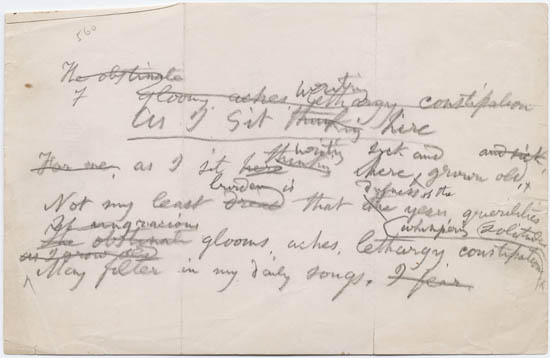 560
The obstinate
writing
gloomy aches, lethargy constipation
As I sit thinking here
writing sick and and sick
For me, as I sit here thinking here, grown old,
burden is of the
Not my least dread that the years querilities
ungracious
The obstinate glooms, aches, lethargy, constipation
as I grow old
May filter in my daily songs. I fear